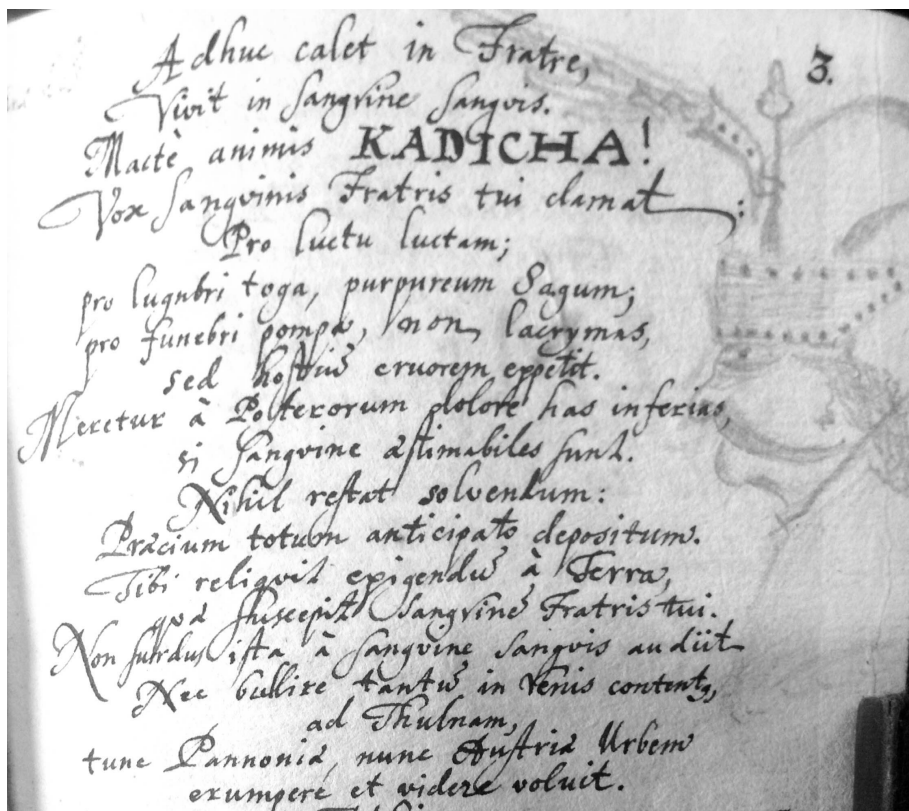 3.
Adhuc calet in Fratre,
Vivit in sangvine sangvis.
Macte animis KADICHA!
Vox sangvinis Fratris tui clamat:
Pro luctu luctam;
pro lugubri toga, purpureum Sagum;
pro funebri pompa, non lacrymas,
sed hostiū cruorem expetit.
Meretur à Posterorum dolore has inferias,
si sangvine æstimabiles sunt.
Nihil restat solvendum:
Præcium totum anticipato depositum.
Tibi reliquit exigendū à Terra,
quæ suscepit sangvinē Fratris tui.
Non surdus ista à sangvine sangvis audiit
Nec bullire tantū in venis contentꝰ,
ad Thulnam,
tunc Pannoniæ, nunc Austriæ Urbem
erumpere et videre voluit.